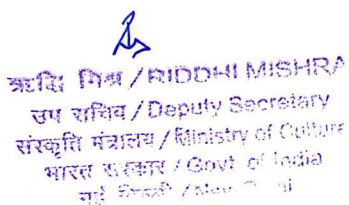 ऋद्धि मिश्र / RIDDHI MISHRA
उप सचिव / Deputy Secretary
संस्कृति मंत्रालय / Ministry of Culture
भारत सरकार / Govt. of India
नई दिल्ली / New